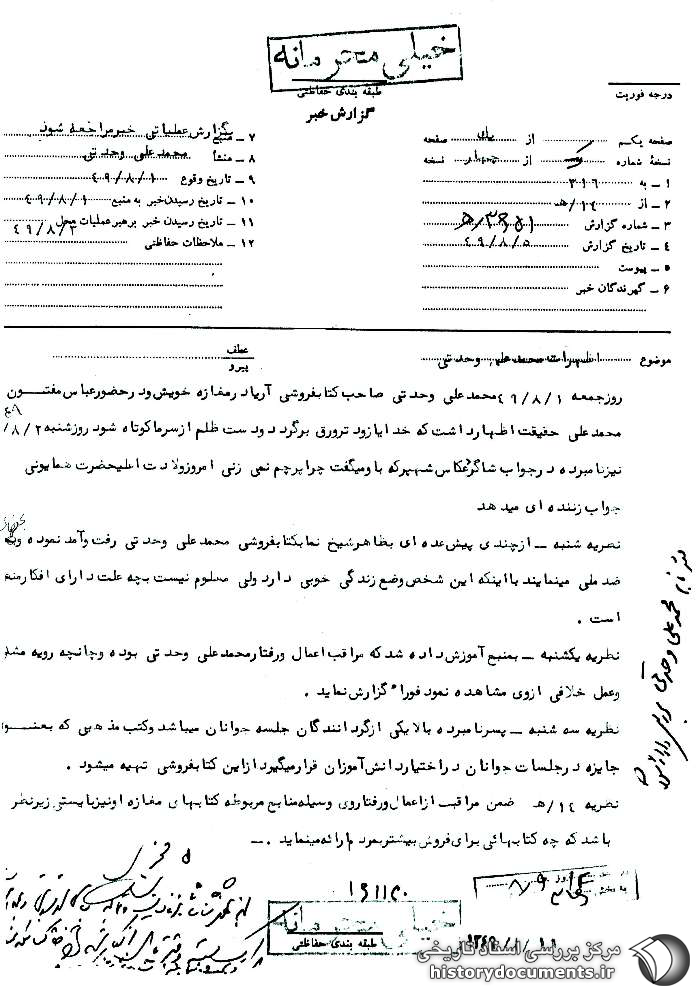 خیلی محرمانه
طبقه بندی حفاظتی
گزارش خبر
درجه فوریت
صفحه یکم از یک صفحه
نسخهٔ شماره از چهار نسخه
۱ – به ۳۱۶
۲ – از ۱۴/ﻫ
۳ – شماره گزارش
۴ – تاریخ گزارش ۴۹/۸/۵
۵ – پیوست
۶ – گیرندگان خبر
۷ – منبع بگزارش عملیاتی خبر مراجعه شود
۸ – منشأ محمدعلی وحدتی
۹ – تاریخ وقوع ۴۹/۸/۱
۱۰ – تاریخ رسیدن خبر به منبع ۴۹/۸/۱
۱۱ – تاریخ رسیدن خبر برهبر عملیات محل ۴۹/۸/۳
۱۲ – ملاحظات حفاظتی
موضوع اظهارات محمدعلی وحدتی
عطف
پیرو
روز جمعه ۴۹/۸/۱ محمدعلی وحدتی صاحب کتابفروشی آریا در مغازه خویش و در حضور عباس مفتون
محمدعلی حقیقت اظهار داشت که خدایا زودتر ورق برگردد و دست ظلم از سر ما کوتاه شود روز شنبه ۴۹/۸/۲
نیز نامبرده در جواب شاگرد عکاس شهپر که باو میگفت چرا پرچم نمی زنی امروز ولادت اعلیحضرت همایونی
جواب زننده ای میدهد
نظریه شنبه – از چندی پیش عده ای بظاهر شیخ نما بکتابفروشی محمدعلی وحدتی رفت و آمد نموده و
ضد ملی مینمایند با اینکه این شخص وضع زندگی خوبی دارد ولی معلوم نیست بچه علت دارای افکار
است .
نظریه یکشنبه – بمنبع آموزش داده شد که مراقب اعمال و رفتار محمدعلی وحدتی بوده و چانچه رویه
و عمل خلافی از وی مشاهده نمود فورا" گزارش نماید .
نظریه سه شنبه – پسر نامبرده بالا یکی از گردانندگان جلسه جوانان میباشد و کتب مذهبی که بعنوا
جایزه در جلسات جوانان در اختیار دانش آموزان قرار میگیرد از این کتابفروشی تهیه میشود .
نظریه ۱۴/ﻫ ضمن مراقبت از اعمال و رفتار وی وسیله منابع مربوطه کتابهای مغازه او نیز بایستی زیر نظر
باشد که چه کتابهائی برای فروش بیشتر بمردم ارائه مینماید . –
محمدعلی وحدتی
خیلی محرمانه
طبقه بندی حفاظتی
مرکز بررسی اسناد تاریخی
historydocuments.ir